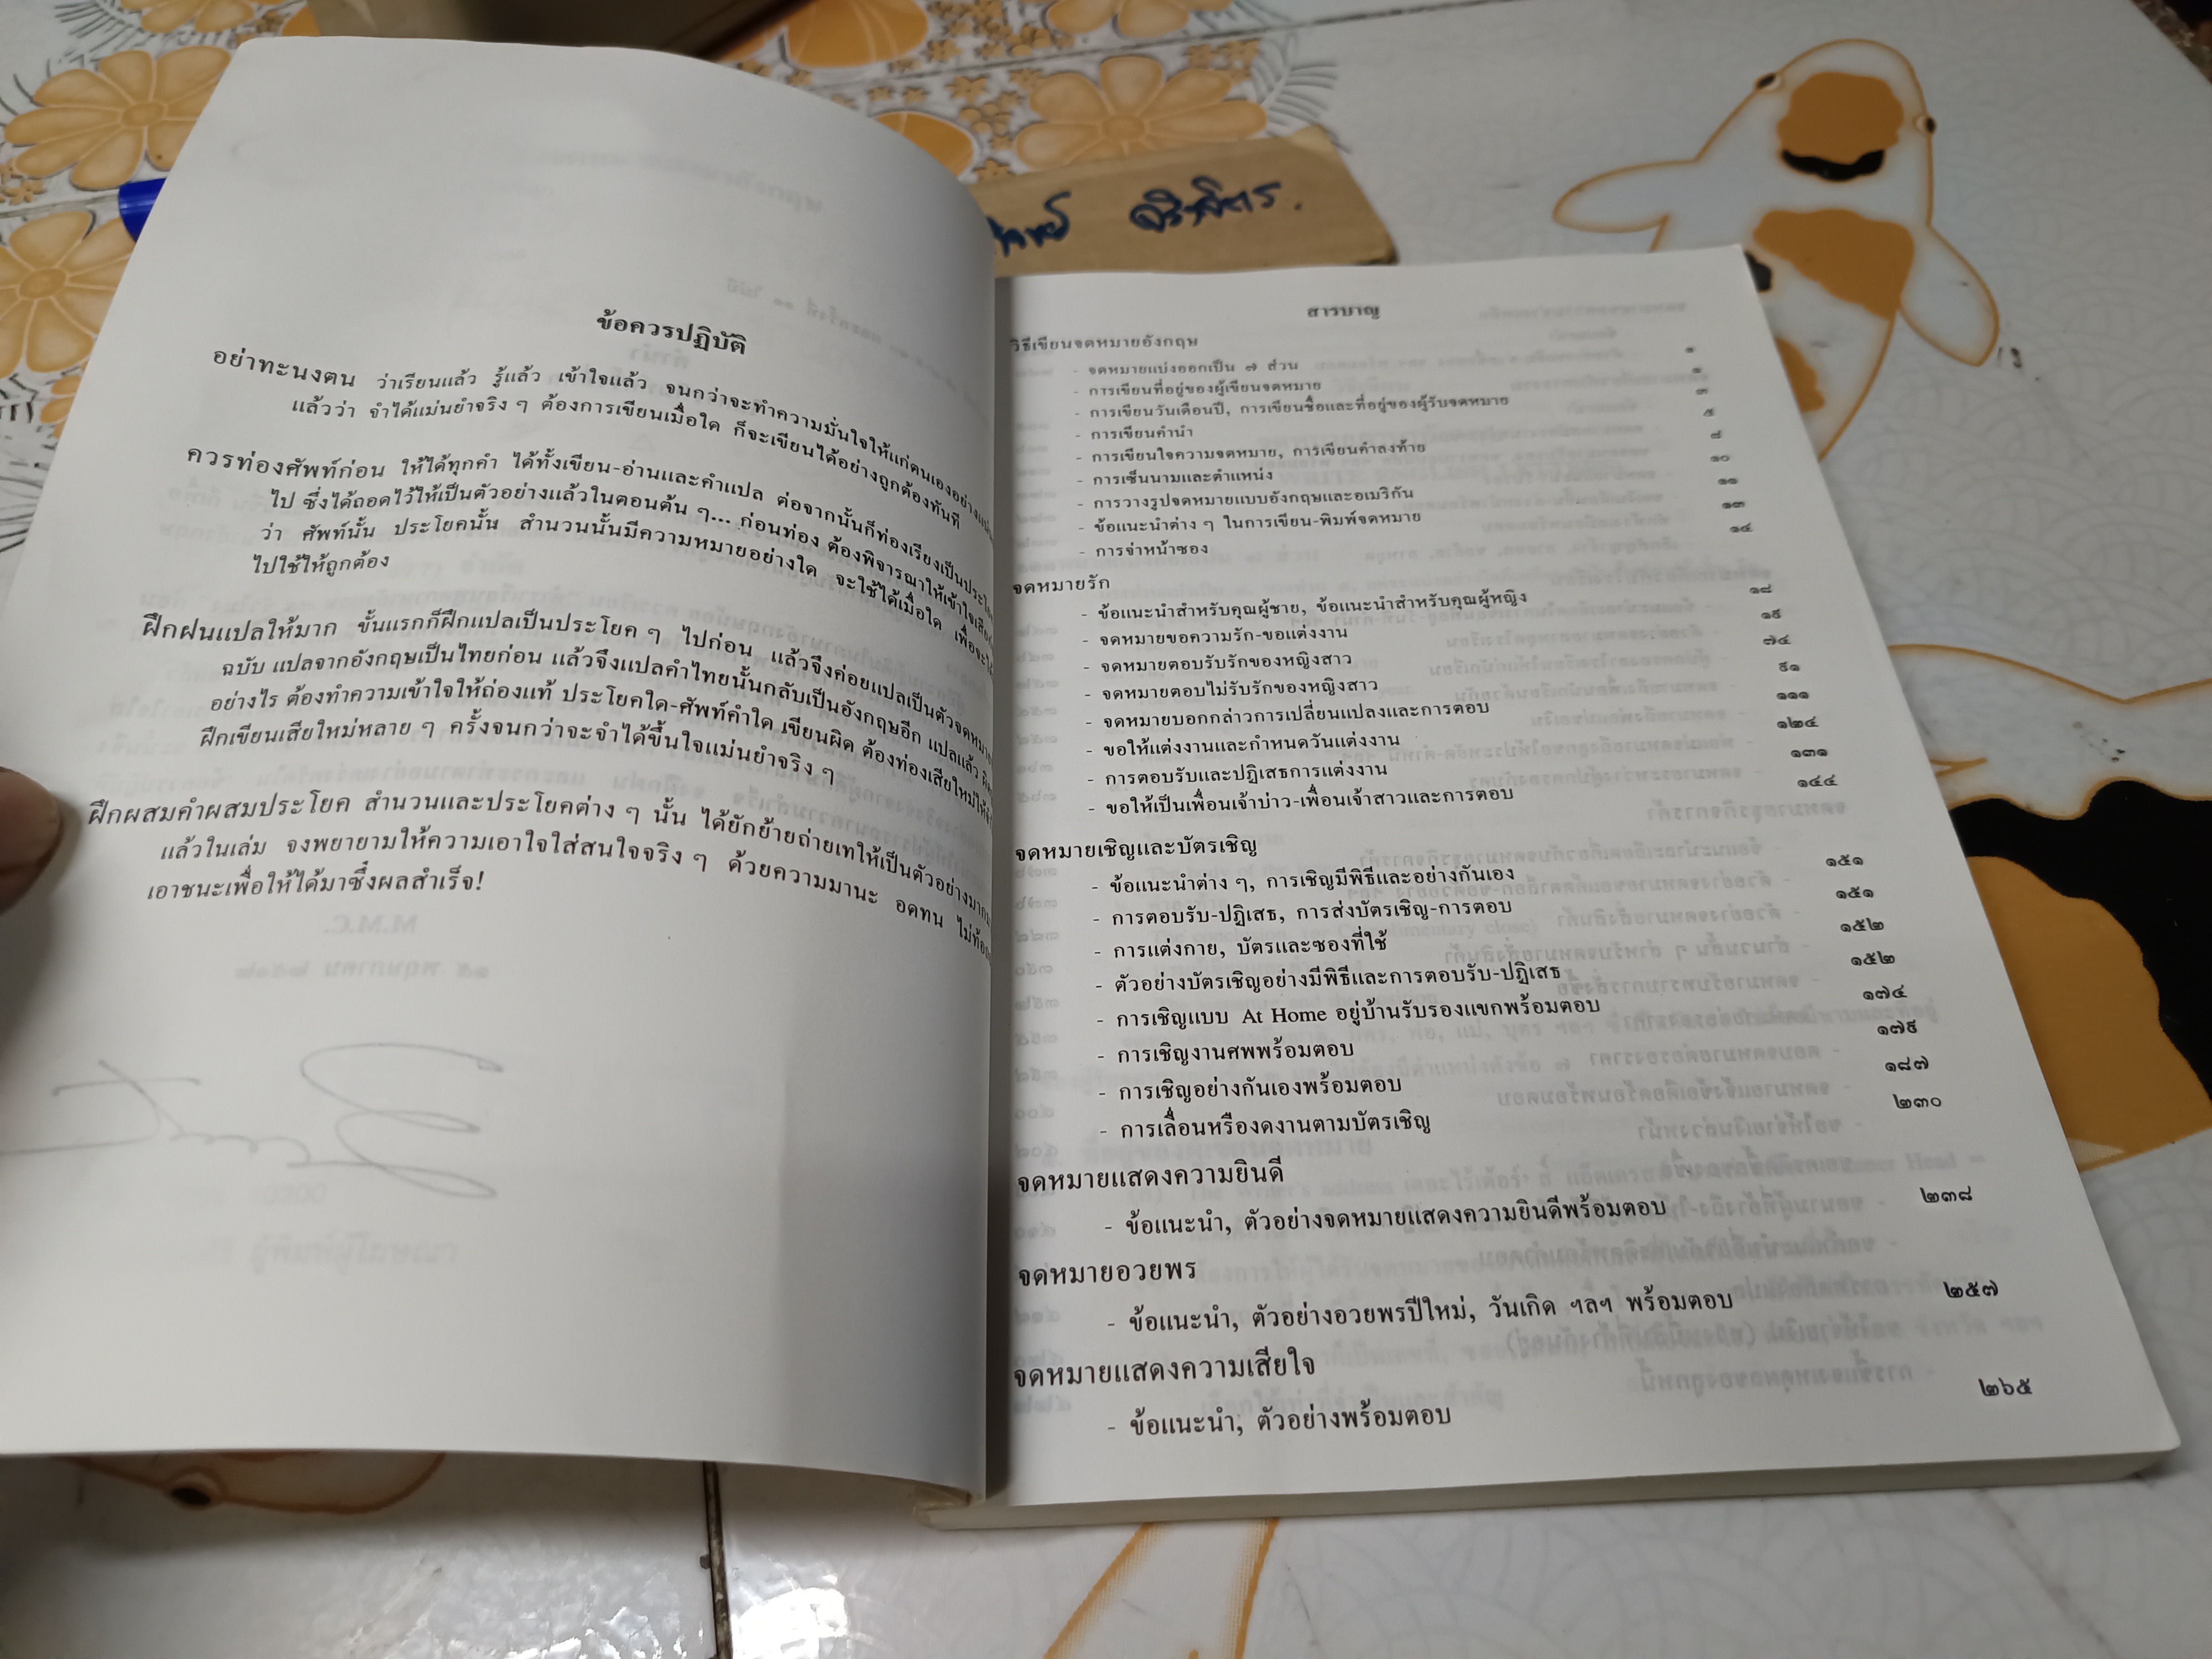 ข้อควรปฏิบัติ
อย่าทะนงตน ว่าเรียนแล้ว รู้แล้ว เข้าใจแล้ว จนกว่าจะทำความมั่นใจให้แก่ตนเองอย่าง
แล้วว่า จำได้แม่นยำจริง ๆ ต้องการเขียนเมื่อใด ก็จะเขียนได้อย่างถูกต้องทันที
ควรท่องศัพท์ก่อน ให้ได้ทุกคำ ได้ทั้งเขียน-อ่านและคำแปล ต่อจากนั้นก็ท่องเรียงเป็นประโยค
ไป ซึ่งได้ถอดไว้ให้เป็นตัวอย่างแล้วในตอนต้น ๆ... ก่อนท่อง ต้องพิจารณาให้เข้าใจเสียก่อน
ว่า ศัพท์นั้น ประโยคนั้น สำนวนนั้นมีความหมายอย่างใด จะใช้ได้เมื่อใด เพื่อจะได้
ไปใช้ให้ถูกต้อง
ฝึกฝนแปลให้มาก ขั้นแรกก็ฝึกแปลเป็นประโยค ๆ ไปก่อน แล้วจึงค่อยแปลเป็นตัวจดหมาย
ฉบับ แปลจากอังกฤษเป็นไทยก่อน แล้วจึงแปลคำไทยนั้นกลับเป็นอังกฤษอีก แปลแล้ว
อย่างไร ต้องทำความเข้าใจให้ถ่องแท้ ประโยคใด-ศัพท์คำใด เขียนผิด ต้องท่องเสียใหม่ให้
ฝึกเขียนเสียใหม่หลาย ๆ ครั้งจนกว่าจะจำได้ขึ้นใจแม่นยำจริง ๆ
ฝึกผสมคำผสมประโยค สำนวนและประโยคต่าง ๆ นั้น ได้ยักย้ายถ่ายเทให้เป็นตัวอย่างมาก
แล้วในเล่ม จงพยายามให้ความเอาใจใส่สนใจจริง ๆ ด้วยความมานะ อดทน
เอาชนะเพื่อให้ได้มาซึ่งผลสำเร็จ!
สารบาญ
วิธีเขียนจดหมายอังกฤษ
- จดหมายแบ่งออกเป็น ๗ ส่วน ๑
- การเขียนที่อยู่ของผู้เขียนจดหมาย ๑
- การเขียนวันเดือนปี, การเขียนชื่อและที่อยู่ของผู้รับจดหมาย ๓
- การเขียนคำนำ ๕
- การเขียนใจความจดหมาย, การเขียนคำลงท้าย ๘
- การเซ็นนามและตำแหน่ง ๑๐
- การวางรูปจดหมายแบบอังกฤษและอเมริกัน ๑๑
- ข้อแนะนำต่าง ๆ ในการเขียน-พิมพ์จดหมาย ๑๓
- การจ่าหน้าซอง ๑๔
จดหมายรัก
- ข้อแนะนำสำหรับคุณผู้ชาย, ข้อแนะนำสำหรับคุณผู้หญิง ๑๘
- จดหมายขอความรัก-ขอแต่งงาน ๑๙
- จดหมายตอบรับรักของหญิงสาว ๗๔
- จดหมายตอบไม่รับรักของหญิงสาว ๙๑
- จดหมายบอกกล่าวการเปลี่ยนแปลงและการตอบ ๑๑๑
- ขอให้แต่งงานและกำหนดวันแต่งงาน ๑๒๔
- การตอบรับและปฏิเสธการแต่งงาน ๑๓๑
- ขอให้เป็นเพื่อนเจ้าบ่าว-เพื่อนเจ้าสาวและการตอบ ๑๔๔
จดหมายเชิญและบัตรเชิญ
- ข้อแนะนำต่าง ๆ, การเชิญมีพิธีและอย่างกันเอง ๑๕๑
- การตอบรับ-ปฏิเสธ, การส่งบัตรเชิญ-การตอบ ๑๕๑
- การแต่งกาย, บัตรและซองที่ใช้ ๑๕๒
- ตัวอย่างบัตรเชิญอย่างมีพิธีและการตอบรับ-ปฏิเสธ ๑๕๒
- การเชิญแบบ At Home อยู่บ้านรับรองแขกพร้อมตอบ ๑๗๔
- การเชิญงานศพพร้อมตอบ ๑๗๙
- การเชิญอย่างกันเองพร้อมตอบ ๑๘๗
- การเลื่อนหรืองดงานตามบัตรเชิญ ๒๓๐
จดหมายแสดงความยินดี
- ข้อแนะนำ, ตัวอย่างจดหมายแสดงความยินดีพร้อมตอบ ๒๓๘
จดหมายอวยพร
- ข้อแนะนำ, ตัวอย่างอวยพรปีใหม่, วันเกิด ฯลฯ พร้อมตอบ ๒๕๗
จดหมายแสดงความเสียใจ
- ข้อแนะนำ, ตัวอย่างพร้อมตอบ ๒๖๕